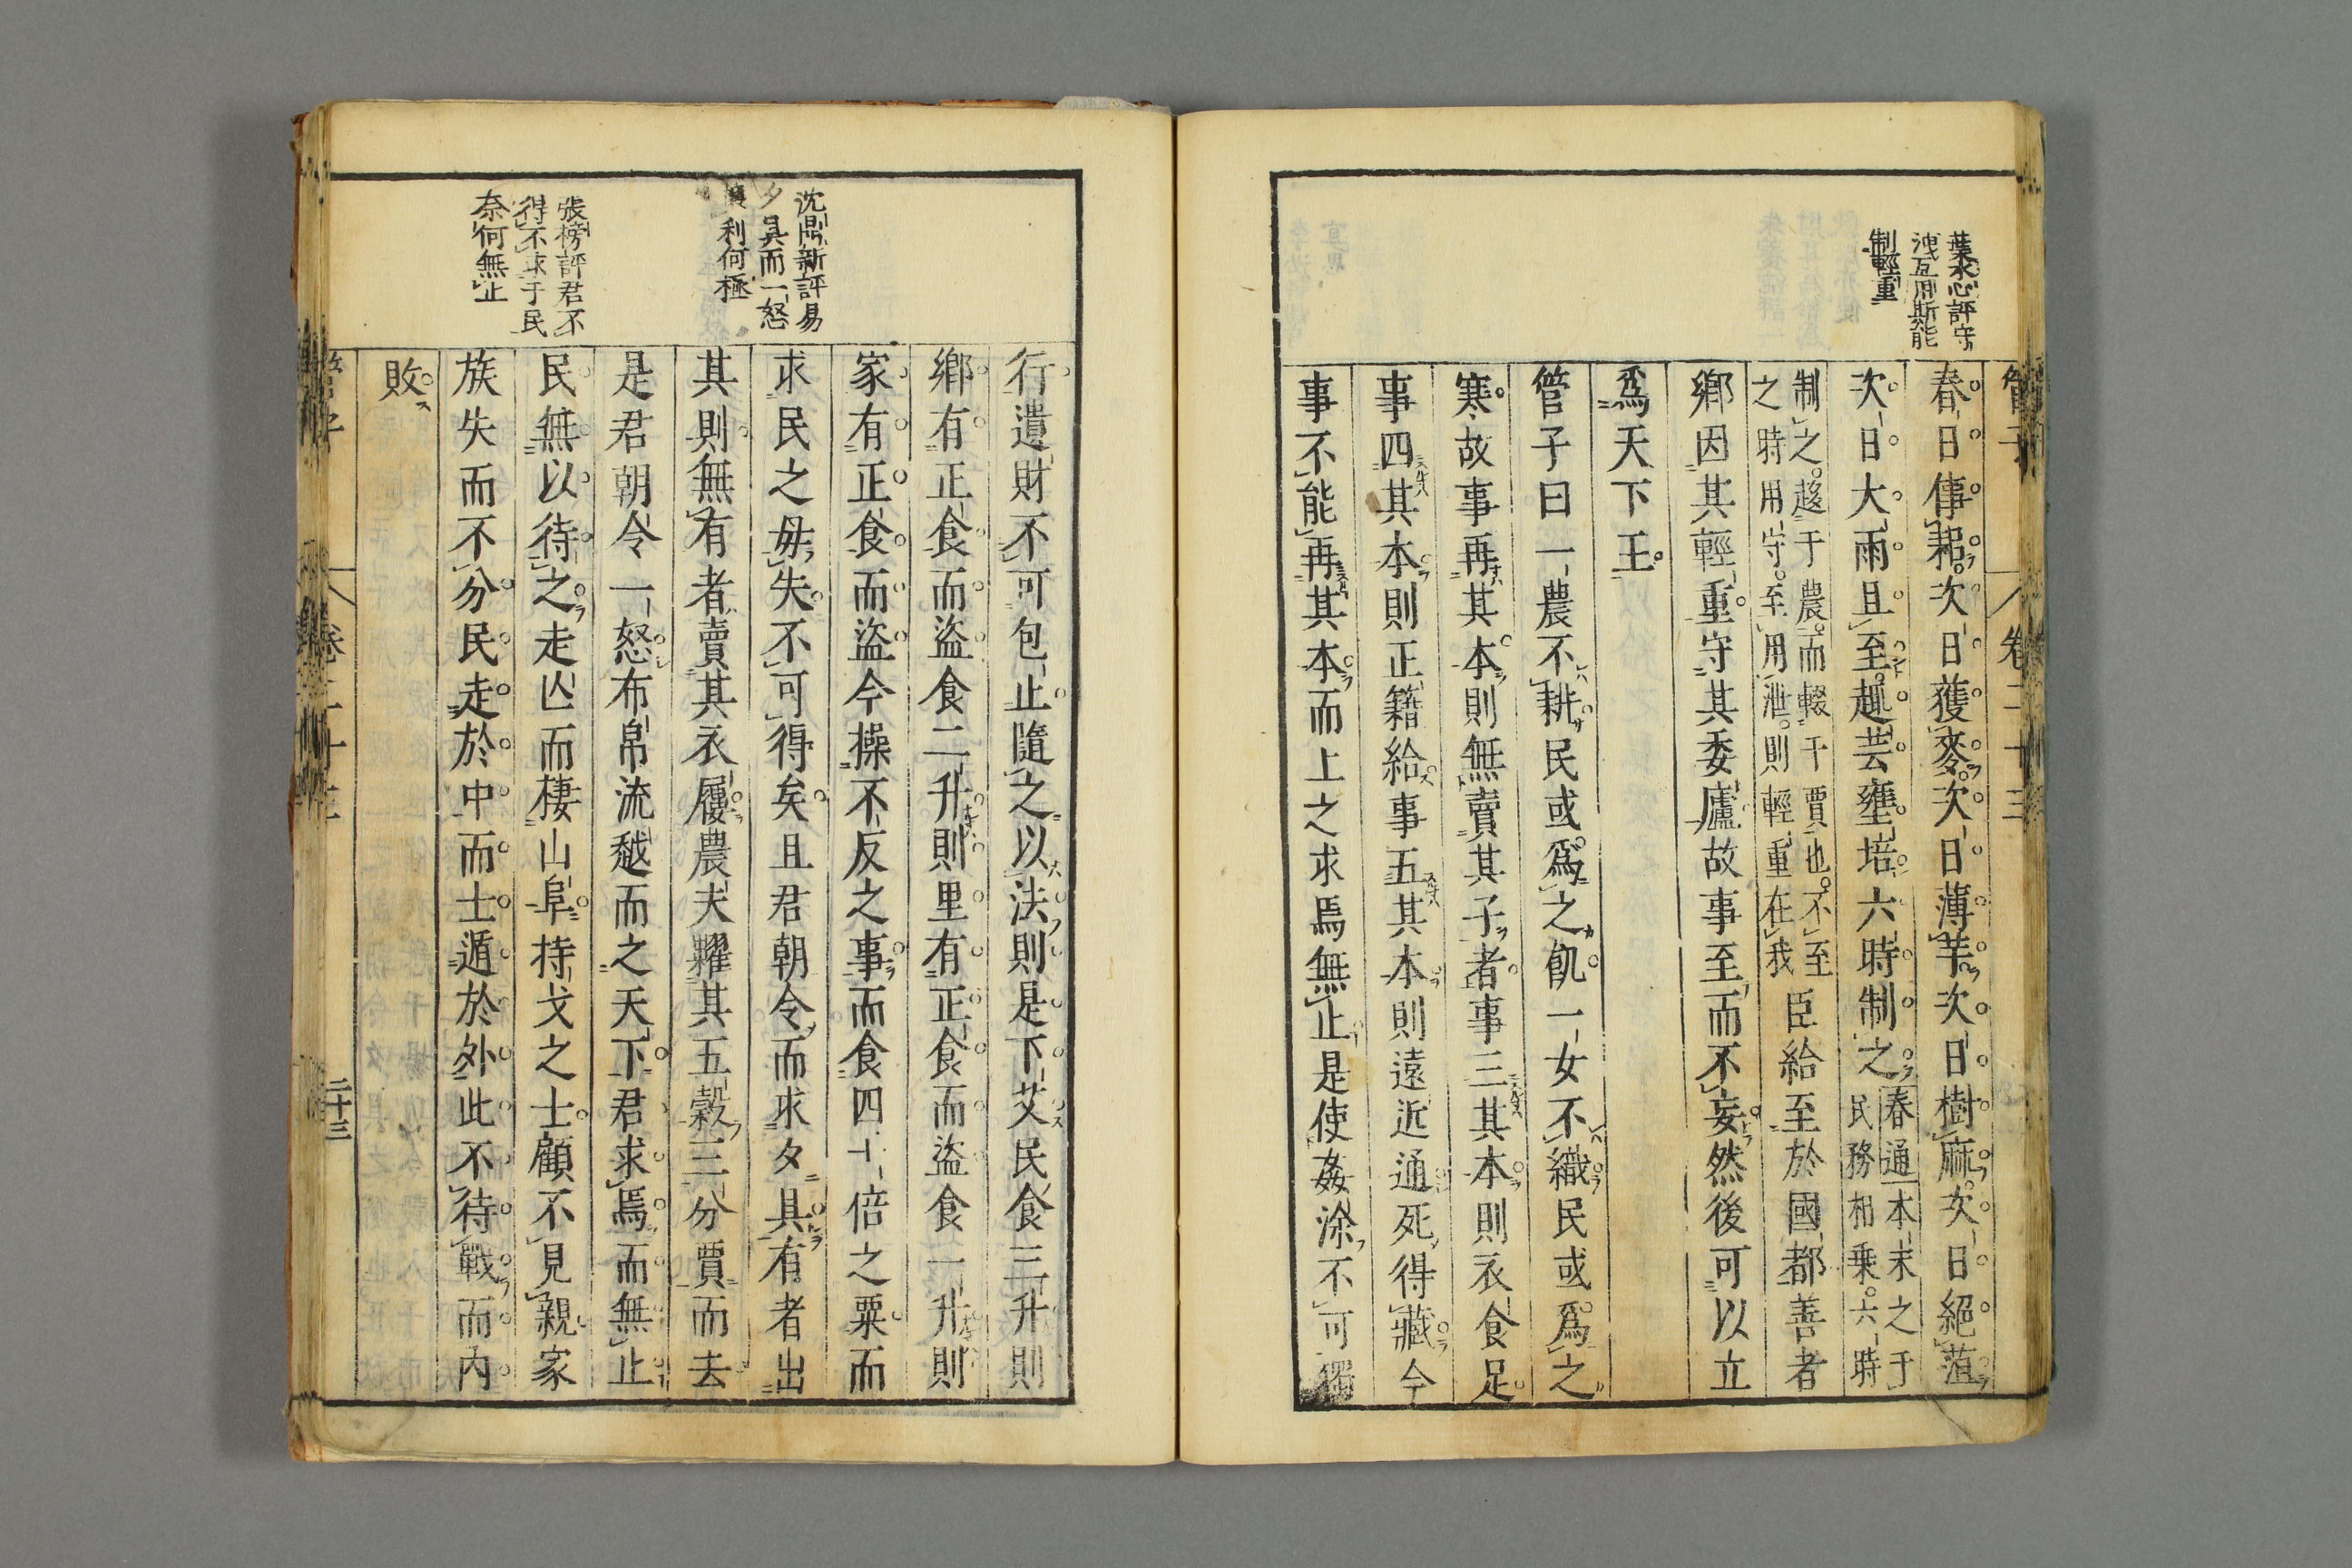 葉水心評守
洩互用斯能
制輕重
春日傳耜次日獲麥次日薄芋次日樹麻次日絕菹
次日大雨且至趣芸壅培六時制之春通本末之于
民務相乗六時
制之趍于農而輟于賈也不至
之時用守至用泄則輕重在我
臣給至於國都善者
鄉因其輕重守其委廬故事至而不妄然後可以立
爲天下王
管子曰一農不耕民或爲之飢一女不織民或爲之
寒故事再其本則無賣其子者事三其本則衣食足
事四其本則正籍給事五其本則遠近通死得藏今
事不能再其本而上之求焉無止是使姦涂不可獨
行遺財不可包止隨之以法則是下艾民食三升則
鄉有正食而盜食二升則里有正食而盜食一升則
家有正食而盜今操不反之事而食四十倍之粟而
求民之毋失不可得矣且君朝令而求夕具有者出
其則無有者賣其衣屨農夫糶其五穀三分賈而去
是君朝令一怒布帛流越而之天下君求焉而無止
民無以待之走亾而棲山阜持戈之士顧不見親家
族失而不分民走於中而士遁於外此不待戰而內
敗
沈鼎新評易
夕具而一怒
利何極
張榜評君不
得不求于民
奈何無止
管子
卷二十三
二十三